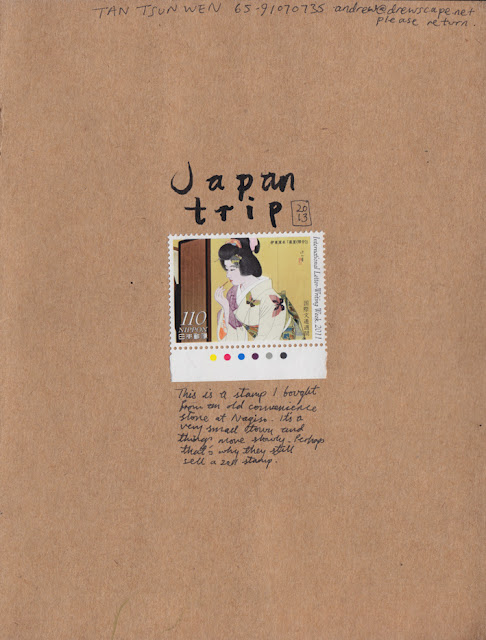 TAN TSUN WEN 65-91070735 andrew@drewscape.net
please return.
Japan
trip 2013
International Letter-Writing Week 2011
110
NIPPON
日本郵便
国際文通週間
This is a stamp I bought
from an old convenience
store at Nagiso. It's a
very small town and
things move slowly. Perhaps
that's why they still
sell a 2011 stamp.